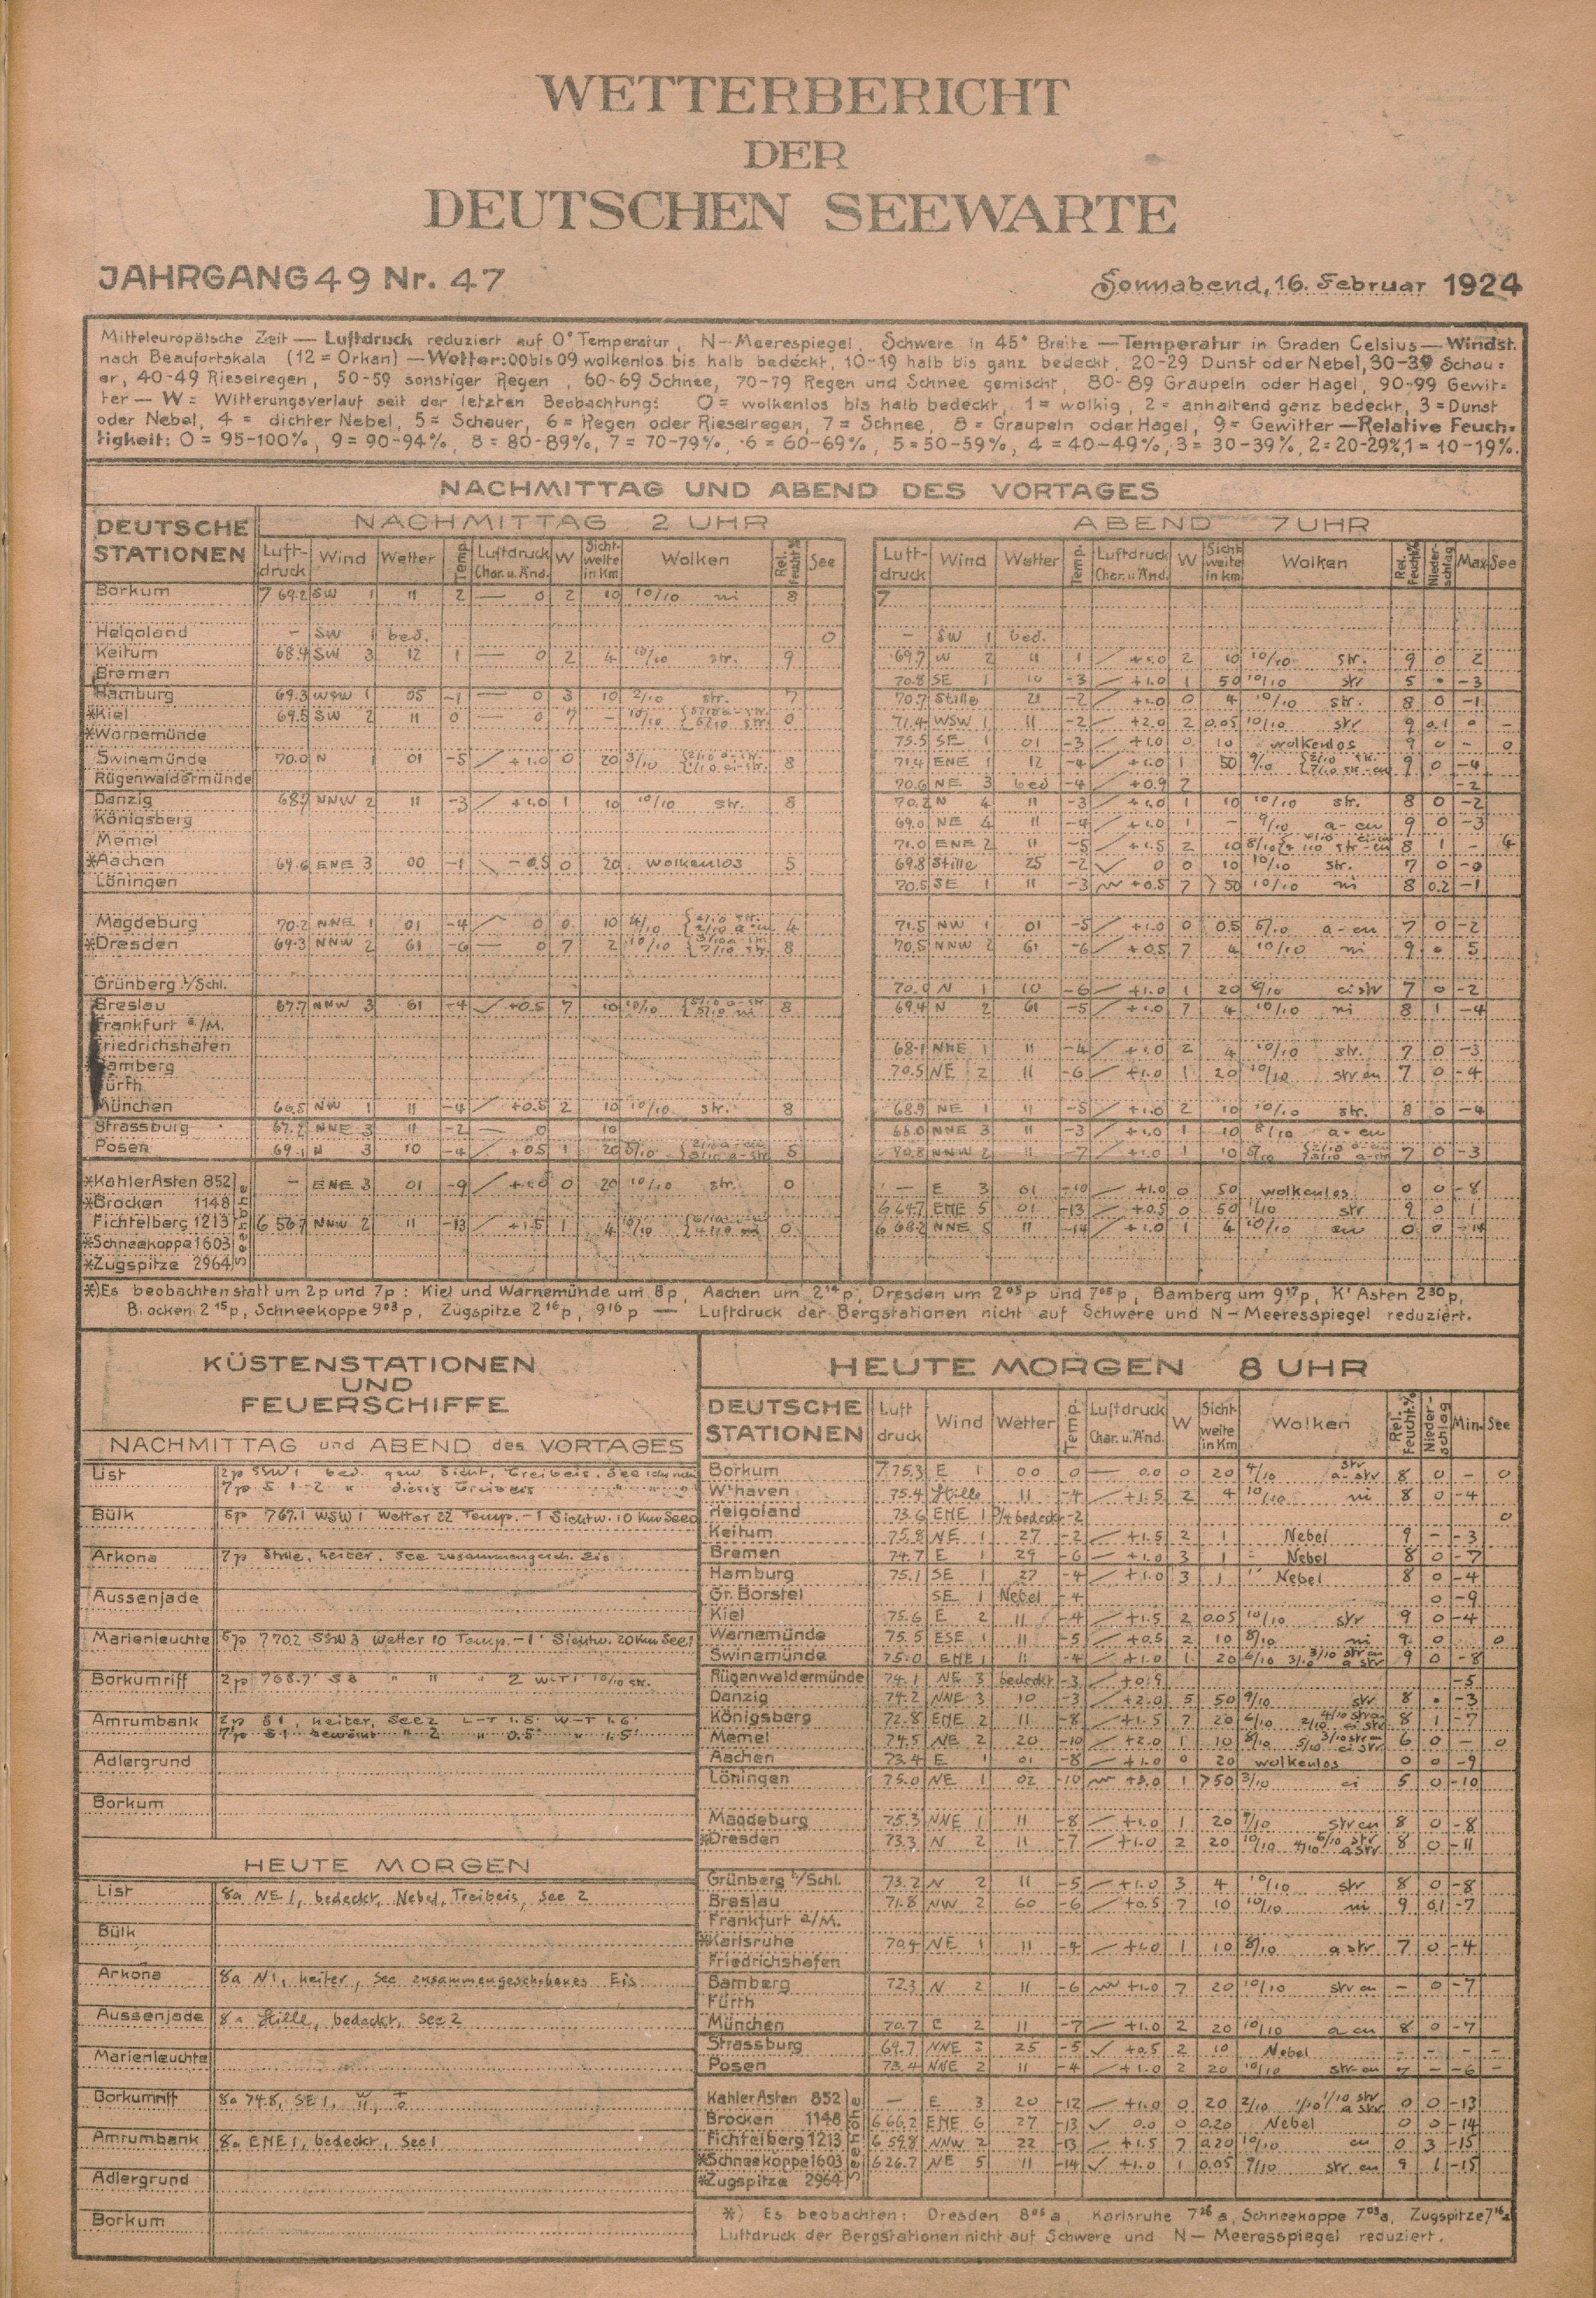 WETTERBERICHT
DER
DEUTSCHEN SEEWARTE
JAHRGANG 49 Nr. 47
Sonnabend, 16. Februar 1924
Mitteleuropäische Zeit — Luftdruck reduziert auf 0° Temperatur, N-Meerespiegel, Schwere in 45° Breite — Temperatur in Graden Celsius — Windst.
nach Beaufortskala (12 = Orkan) — Wetter: 00 bis 09 wolkenlos bis halb bedeckt, 10-19 halb bis ganz bedeckt, 20-29 Dunst oder Nebel, 30-39 Schau=
er, 40-49 Rieselregen, 50-59 sonstiger Regen, 60-69 Schnee, 70-79 Regen und Schnee gemischt, 80-89 Graupeln oder Hagel, 90-99 Gewit=
ter — W = Witterungsverlauf seit der letzten Beobachtung: 0 = wolkenlos bis halb bedeckt, 1 = wolkig, 2 = anhaltend ganz bedeckt, 3 = Dunst
oder Nebel, 4 = dichter Nebel, 5 = Schauer, 6 = Regen oder Rieselregen, 7 = Schnee, 8 = Graupeln oder Hagel, 9 = Gewitter — Relative Feuch=
tigkeit: 0 = 95-100%, 9 = 90-94%, 8 = 80-89%, 7 = 70-79%, 6 = 60-69%, 5 = 50-59%, 4 = 40-49%, 3 = 30-39%, 2 = 20-29%, 1 = 10-19%.
NACHMITTAG UND ABEND DES VORTAGES
DEUTSCHE STATIONEN
NACHMITTAG 2 UHR
ABEND 7 UHR
Luft-druck Wind Wetter Temp. Luftdruck Char. u. Änd. W Sicht-weite in Km Wolken Rel. Feucht.% See
Luft-druck Wind Wetter Temp. Luftdruck Char. u. Änd. W Sicht-weite in Km Wolken Rel. Feucht.% Nieder-schlag Max See
Borkum 769.2 SW 1 11 2 — 0 2 10 10/10 ni 8 7
Helgoland – SW 1 bed. 0 – SW 1 bed.
Keitum 68.4 SW 3 12 1 — 0 2 4 10/10 str. 9 69.7 W 2 11 1 +1.0 2 10 10/10 str. 9 0 2
Bremen 70.8 SE 1 10 -3 +1.0 1 50 10/10 str 5 • -3
Hamburg 69.3 WSW 1 05 -1 — 0 3 10 2/10 str. 7 70.7 Stille 21 -2 +1.0 0 4 10/10 str. 8 0 -1
*Kiel 69.5 SW 2 11 0 — 0 7 – 10/10 0 71.4 WSW 1 11 -2 +2.0 2 0.05 10/10 str 9 0.1 0 –
*Warnemünde 75.5 SE 1 01 -3 +1.0 0 10 wolkenlos 9 0 – 0
Swinemünde 70.0 N 1 01 -5 +1.0 0 20 3/10 8 71.4 ENE 1 12 -4 +1.0 1 50 9/10 9 0 -4
Rügenwaldermünde 70.6 NE 3 bed -4 +0.9 2 -2
Danzig NNW 2 11 -3 +1.0 1 10 10/10 str. 8 70.2 N 4 11 -3 +1.0 1 10 10/10 str. 8 0 -2
Königsberg 69.0 NE 4 11 -4 +1.0 1 – 9/10 a-cu 9 0 -3
Memel 71.0 ENE 2 11 -5 +1.5 2 10 8 1 – 4
*Aachen 69.6 ENE 3 00 -1 -0.5 0 20 wolkenlos 5 69.8 Stille 25 -2 0 0 10 10/10 str. 7 0
Löningen 70.5 SE 1 11 -3 +0.5 7 >50 10/10 ni 8 0.2 -1
Magdeburg 70.2 NNE 1 01 -4 0 0 10 4/10 4 71.5 NW 1 01 -5 +1.0 0 0.5 5/10 a-cu 7 0 -2
*Dresden 69.3 NNW 2 61 -6 — 0 7 2 10/10 8 70.5 NNW 2 61 -6 +0.5 7 4 10/10 ni 9 • 5
Grünberg i/Schl. N 1 10 -6 +1.0 1 20 ci str 7 0 -2
Breslau 67.7 NNW 3 61 -4 +0.5 7 10 10/10 8 69.4 N 2 61 -5 +1.0 7 4 10/10 ni 8 1 -4
Frankfurt a/M.
Friedrichshafen 68.1 NNE 1 11 -4 +1.0 2 4 10/10 str. 7 0 -3
Bamberg 70.5 NE 2 11 -6 +1.0 1 20 10/10 str cu 7 0 -4
Fürth
München NW 1 11 -4 +0.5 2 10 10/10 str. 8 68.9 NE 1 11 -5 +1.0 2 10 10/10 str. 8 0 -4
Strassburg 67.2 NNE 3 11 -2 — 0 10 NNE 3 11 -3 +1.0 1 10 8/10 a-cu
Posen 69.1 N 3 10 -4 +0.5 1 20 5/10 5 NNW 2 11 -7 +1.0 1 10 7 0 -3
Seehöhe
*Kahler Asten 852 – ENE 3 01 -9 0 20 10/10 str. 0 — E 3 01 -10 +1.0 0 50 wolkenlos 0 0 -8
*Brocken 1148 ENE 5 01 -13 +0.5 0 50 1/10 str 9 0 1
Fichtelberg 1213 6 56.7 NNW 2 11 -13 +1.5 1 4 10/10 0 NNE 5 11 -14 +1.0 1 4 10/10 cu 0 0 -14
*Schneekoppe 1603
*Zugspitze 2964
*) Es beobachten statt um 2p und 7p: Kiel und Warnemünde um 8p, Aachen um 2 14 p, Dresden um 2 05 p und 7 05 p, Bamberg um 9 17 p, K' Asten 2 30 p,
Brocken 2 15 p, Schneekoppe 9 03 p, Zugspitze 2 16 p, 9 16 p — Luftdruck der Bergstationen nicht auf Schwere und N-Meeresspiegel reduziert.
KÜSTENSTATIONEN
UND
FEUERSCHIFFE
NACHMITTAG und ABEND des VORTAGES
List 2p SSW 1 bed. Sicht, Treibeis. See
7p S 1-2 " diesig Treibeis
Bülk 767.1 WSW 1 Wetter 22 Temp. -1 Sichtw. 10 Km See 0
Arkona 7p Stille, heiter. See zusammengesch. Eis
Aussenjade
Marienleuchte 770.2 SSW 3 Wetter 10 Temp. -1 Sichtw. 20 Km See 1
Borkumriff 2p 768.7 S 3 " 11 " 2 W-T 1 10/10 str.
Amrumbank 2p S 1, heiter, See 2 L-T 1.5 W-T 1.6
7p S 1 bewölkt " 2 " 0.5 " 1.5
Adlergrund
Borkum
HEUTE MORGEN
List 8a NE 1, bedeckt, Nebel, Treibeis, See 2
Bülk
Arkona 8a N 1, heiter, See zusammengeschobenes Eis
Aussenjade 8a Stille, bedeckt, See 2
Marienleuchte
Borkumriff 8a 74.8, SE 1,
Amrumbank 8a ENE 1, bedeckt, See 1
Adlergrund
Borkum
HEUTE MORGEN 8 UHR
DEUTSCHE STATIONEN Luft druck Wind Wetter Temp. Luftdruck Char. u. Änd. W Sicht-weite in Km Wolken Rel. Feucht.% Nieder-schlag Min. See
Borkum 775.3 E 1 00 0 — 0.0 0 20 4/10 str a-str 8 0 – 0
W'haven 75.4 Stille 11 -4 +1.5 2 4 10/10 ni 8 0 -4
Helgoland 73.6 ENE 1 3/4 bedeckt -2 0
Keitum 75.8 NE 1 27 -2 +1.5 2 1 Nebel 9 – -3
Bremen 74.7 E 1 29 -6 +1.0 3 1 Nebel 8 0 -7
Hamburg 75.1 SE 1 27 -4 +1.0 3 1 Nebel 8 0 -4
Gr. Borstel SE 1 Nebel -4 0 -9
Kiel 75.6 E 2 11 -4 +1.5 2 0.05 10/10 str 9 0 -4
Warnemünde 75.5 ESE 1 11 -5 +0.5 2 10 8/10 ni 9 0 0
Swinemünde 75.0 ENE 1 11 -4 +1.0 1 20 6/10 3/10 str cu 3/10 a str 9 0 -8
Rügenwaldermünde 74.1 NE 3 bedeckt -3 +0.9 -5
Danzig 74.2 NNE 3 10 -3 +2.0 5 50 9/10 str 8 • -3
Königsberg 72.8 ENE 2 11 -8 +1.5 7 20 6/10 8 1 -7
Memel 74.5 NE 2 20 -10 +2.0 1 10 8/10 3/10 str cu 5/10 ci str 6 0 – 0
Aachen 73.4 E 1 01 -8 +1.0 0 20 wolkenlos 0 0 -9
Löningen 75.0 NE 1 02 -10 1 >50 3/10 ci 5 0 -10
Magdeburg 75.3 NNE 1 11 -8 +1.0 1 20 str cu 8 0 -8
*Dresden 73.3 N 2 11 -7 +1.0 2 20 10/10 6/10 str 4/10 a str 8 0 -11
Grünberg i/Schl. 73.2 N 2 11 -5 +1.0 3 4 10/10 str 8 0 -8
Breslau 71.8 NW 2 60 -6 +0.5 7 10 10/10 ni 9 0.1 -7
Frankfurt a/M.
*Karlsruhe 70.4 NE 1 11 -4 +1.0 1 10 8/10 a str 7 0 -4
Friedrichshafen
Bamberg 72.3 N 2 11 -6 +1.0 7 20 10/10 str cu – 0 -7
Fürth
München 70.7 E 2 11 -7 +1.0 2 20 10/10 a cu 8 0 -7
Strassburg 69.7 NNE 25 -5 +0.5 2 10 Nebel – – – –
Posen 73.4 NNE 2 11 -4 +1.0 2 20 10/10 str-cu 7 – -6 –
Seehöhe
Kahler Asten 852 — E 3 20 -12 +1.0 0 20 2/10 1/10 str 1/10 a str 0 0 -13
Brocken 1148 6 66.2 ENE 6 27 -13 0.0 0 0.20 Nebel 0 0 -14
Fichtelberg 1213 6 59.8 NNW 2 22 -13 +1.5 7 0.20 10/10 cu 0 3 -15
*Schneekoppe 1603 6 26.7 NE 5 11 -14 +1.0 1 0.05 9/10 str cu 9 1 -15
*Zugspitze 2964
*) Es beobachten: Dresden 8 05 a, Karlsruhe 7 26 a, Schneekoppe 7 03 a, Zugspitze 7 16 a
Luftdruck der Bergstationen nicht auf Schwere und N-Meeresspiegel reduziert.